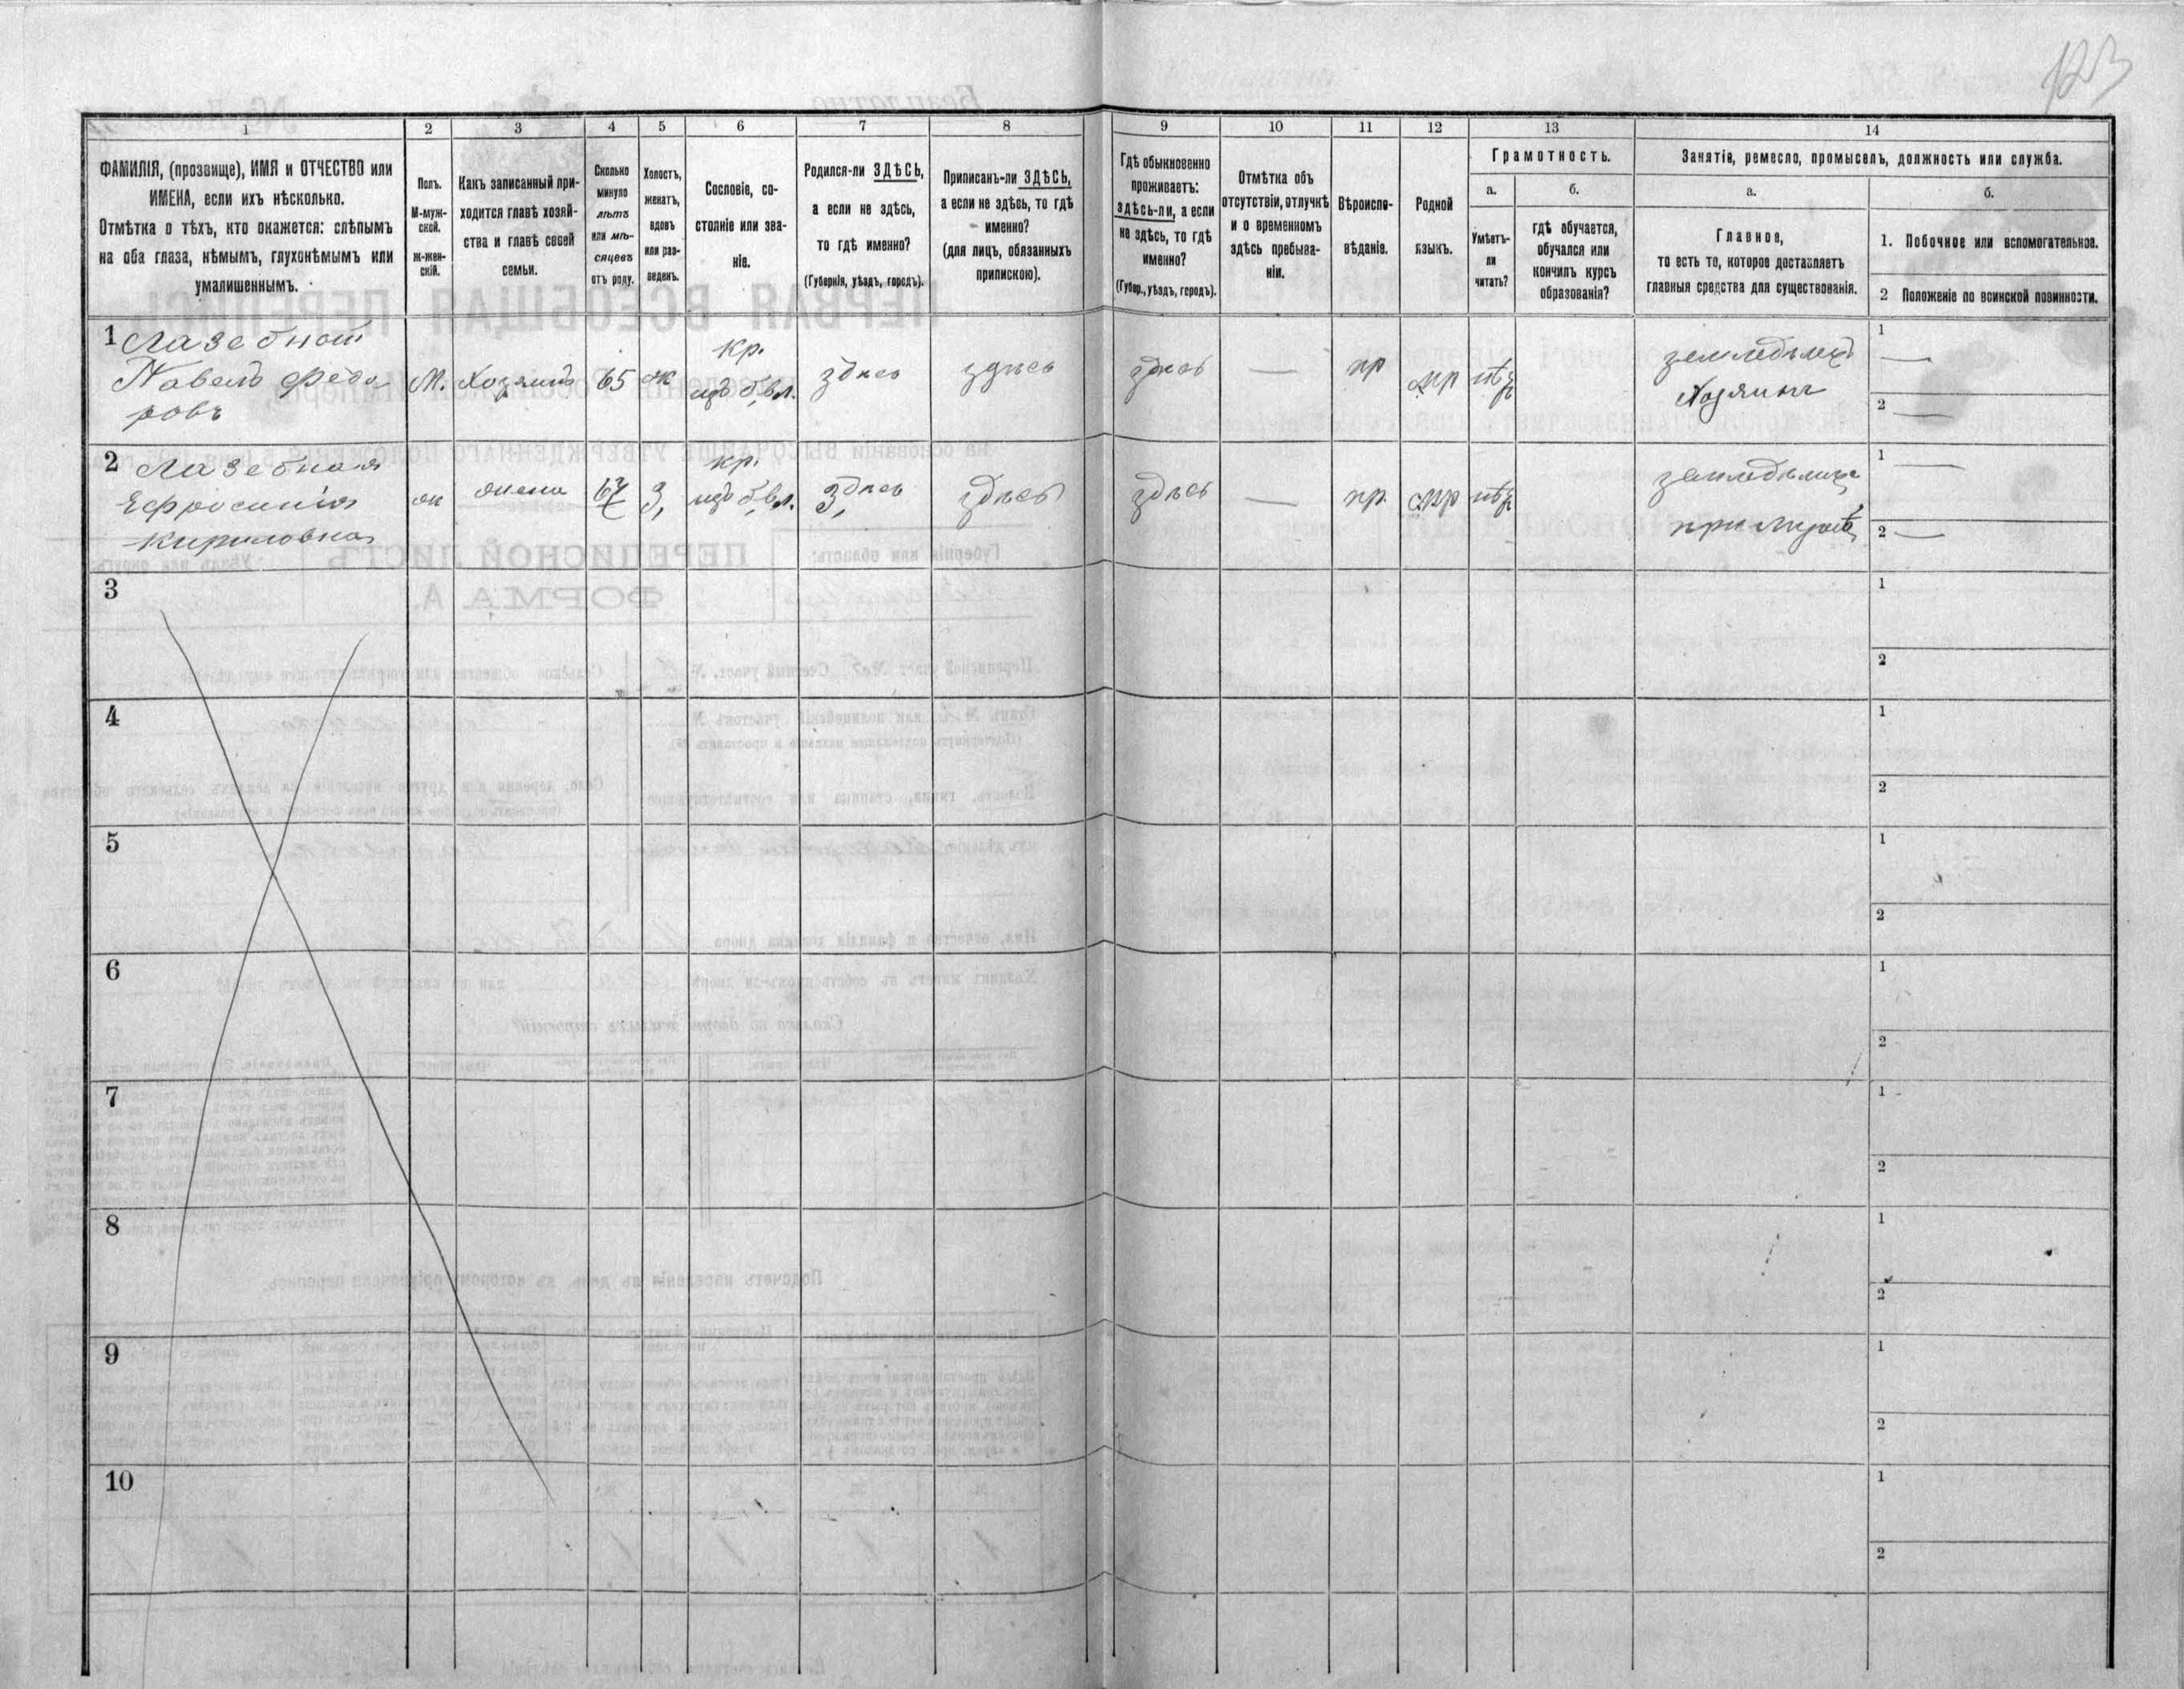 123
1
2
3
4
5
6
7
8
9
10
11
12
13
14
ФАМИЛІЯ, (прозвище), ИМЯ и ОТЧЕСТВО или
ИМЕНА, если ихъ нѣсколько.
Отмѣтка о тѣхъ, кто окажется: слѣпымъ
на оба глаза, нѣмымъ, глухонѣмымъ или
умалишеннымъ.
Полъ.
М-муж-
ской.
Ж-жен-
скій.
Какъ записанный при-
ходится главѣ хозяй-
ства и главѣ своей
семьи.
Сколько
минуло
лѣтъ
или мѣ-
сяцевъ
отъ роду.
Холостъ,
женатъ,
вдовъ
или раз-
веденъ.
Сословіе, со-
стояніе или зва-
ніе.
Родился-ли ЗДѢСЬ,
а если не здѣсь,
то гдѣ именно?
(Губернія, уѣздъ, городъ).
Приписанъ-ли ЗДѢСЬ,
а если не здѣсь, то гдѣ
именно?
(для лицъ, обязанныхъ
припискою).
Гдѣ обыкновенно
проживаетъ:
ЗДѢСЬ-ли, а если
не здѣсь, то гдѣ
именно?
(Губер., уѣздъ, городъ).
Отмѣтка объ
отсутствіи, отлучкѣ
и о временномъ
здѣсь пребыва-
ніи.
Вѣроиспо-
вѣданіе.
Родной
языкъ.
Грамотность.
а.
Умѣетъ-
ли
читать?
б.
гдѣ обучается,
обучался или
кончилъ курсъ
образованія?
Занятіе, ремесло, промыселъ, должность или служба.
а.
Главное,
то есть то, которое доставляетъ
главныя средства для существованія.
б.
1. Побочное или вспомогательное.
2 Положеніе по воинской повинности.
1 Лазебной
Павелъ Федо
ровъ
М.
Хозяинъ
65
ж
Кр.
изъ б. вл.
здѣсь
здѣсь
здѣсь
—
пр
мр
нѣтъ
земледѣлецъ
Хозяинъ
1 —
2 —
2 Лазебная
Ефросинія
Кириловна
ж
жена
67
З,
кр.
изъ б. вл.
Здѣсь
здѣсь
здѣсь
—
пр.
мр
нѣтъ
земледѣлица
при мужѣ
1 —
2 —
3
1
2
4
1
2
5
1
2
6
1
2
7
1
2
8
1
2
9
1
2
10
1
2